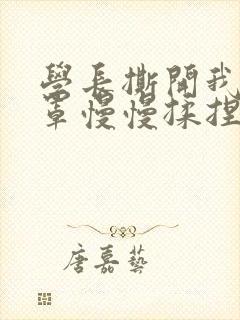 學長撕開我
罩慢慢揉捏
唐嘉藝